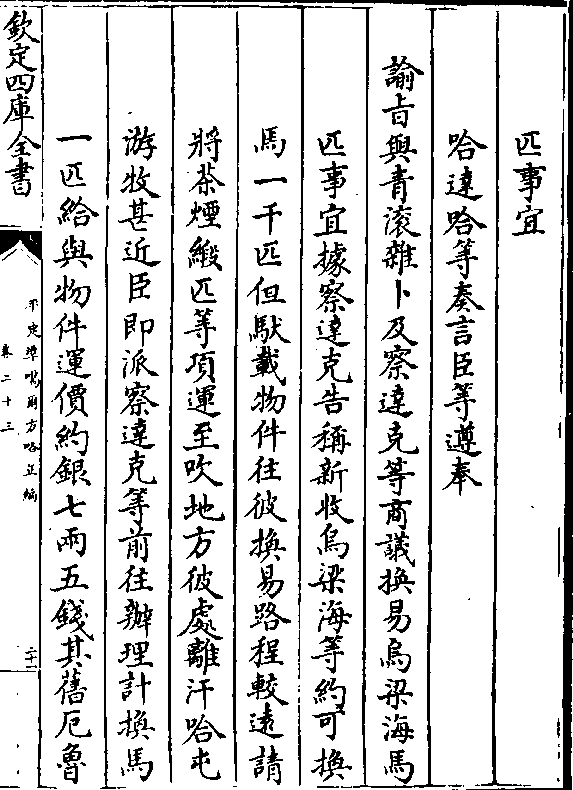 匹事宜
哈達哈等奏言臣等遵奉
諭旨與青滚雜卜及察達克等商議換易烏梁海馬
匹事宜據察達克告稱新收烏梁海等約可換
馬一千匹但馱載物件往彼換易路程較遠請
將茶煙緞匹等項運至吹地方彼處離汗哈屯
游牧甚近臣即派察達克等前往辦理計換馬
一匹給與物件運價約銀七兩五錢其舊厄魯
欽定四庫全書
平定凖噶爾方略正編
卷二十三
二十一